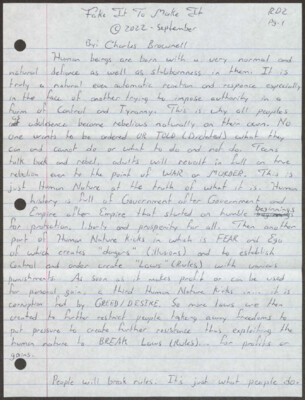 Fake It To Make It
RD2
Pg. 1
© 2022 - September
By: Charles Brownell
Human beings are born with a very normal and
natural defiance as well as stubbornness in them. It is
truly a natural even automatic reaction and response especially
in the face of another trying to impose authority in a
form of Control and Tyranny. This is why all peoples
adolescence become rebelious naturally on their teens. No
one wants to be ordered OR TOLD (Dictated) what they
can and cannot do or what to do and not do. Teens
talk back and rebel, adults will revolt in full on true
rebelion even to the point of WAR or MURDER. This is
just Human Nature at the truth of what it is. Human
history is full of Government after Government and
Empire after Empire that started on humble beginnings
for protection, liberty and prosperity for all. Then another
part of Human Nature Kicks in which is FEAR and Ego
of which creates "dangers" (illusions) and to establish
Control and order create "Laws" (Rules) with warned
punishments. As soon as it makes profit or can be used
for personal gain, a third Human Nature Kicks in... it is
corruption led by GREED/DESIRE. So more laws are then
created to further restrict people taking away freedoms to
put pressure to create further resistance thus exploiting the
human nature to BREAK Laws (Rules)... for profits or
gains.
People will break rules. It's just what people do.